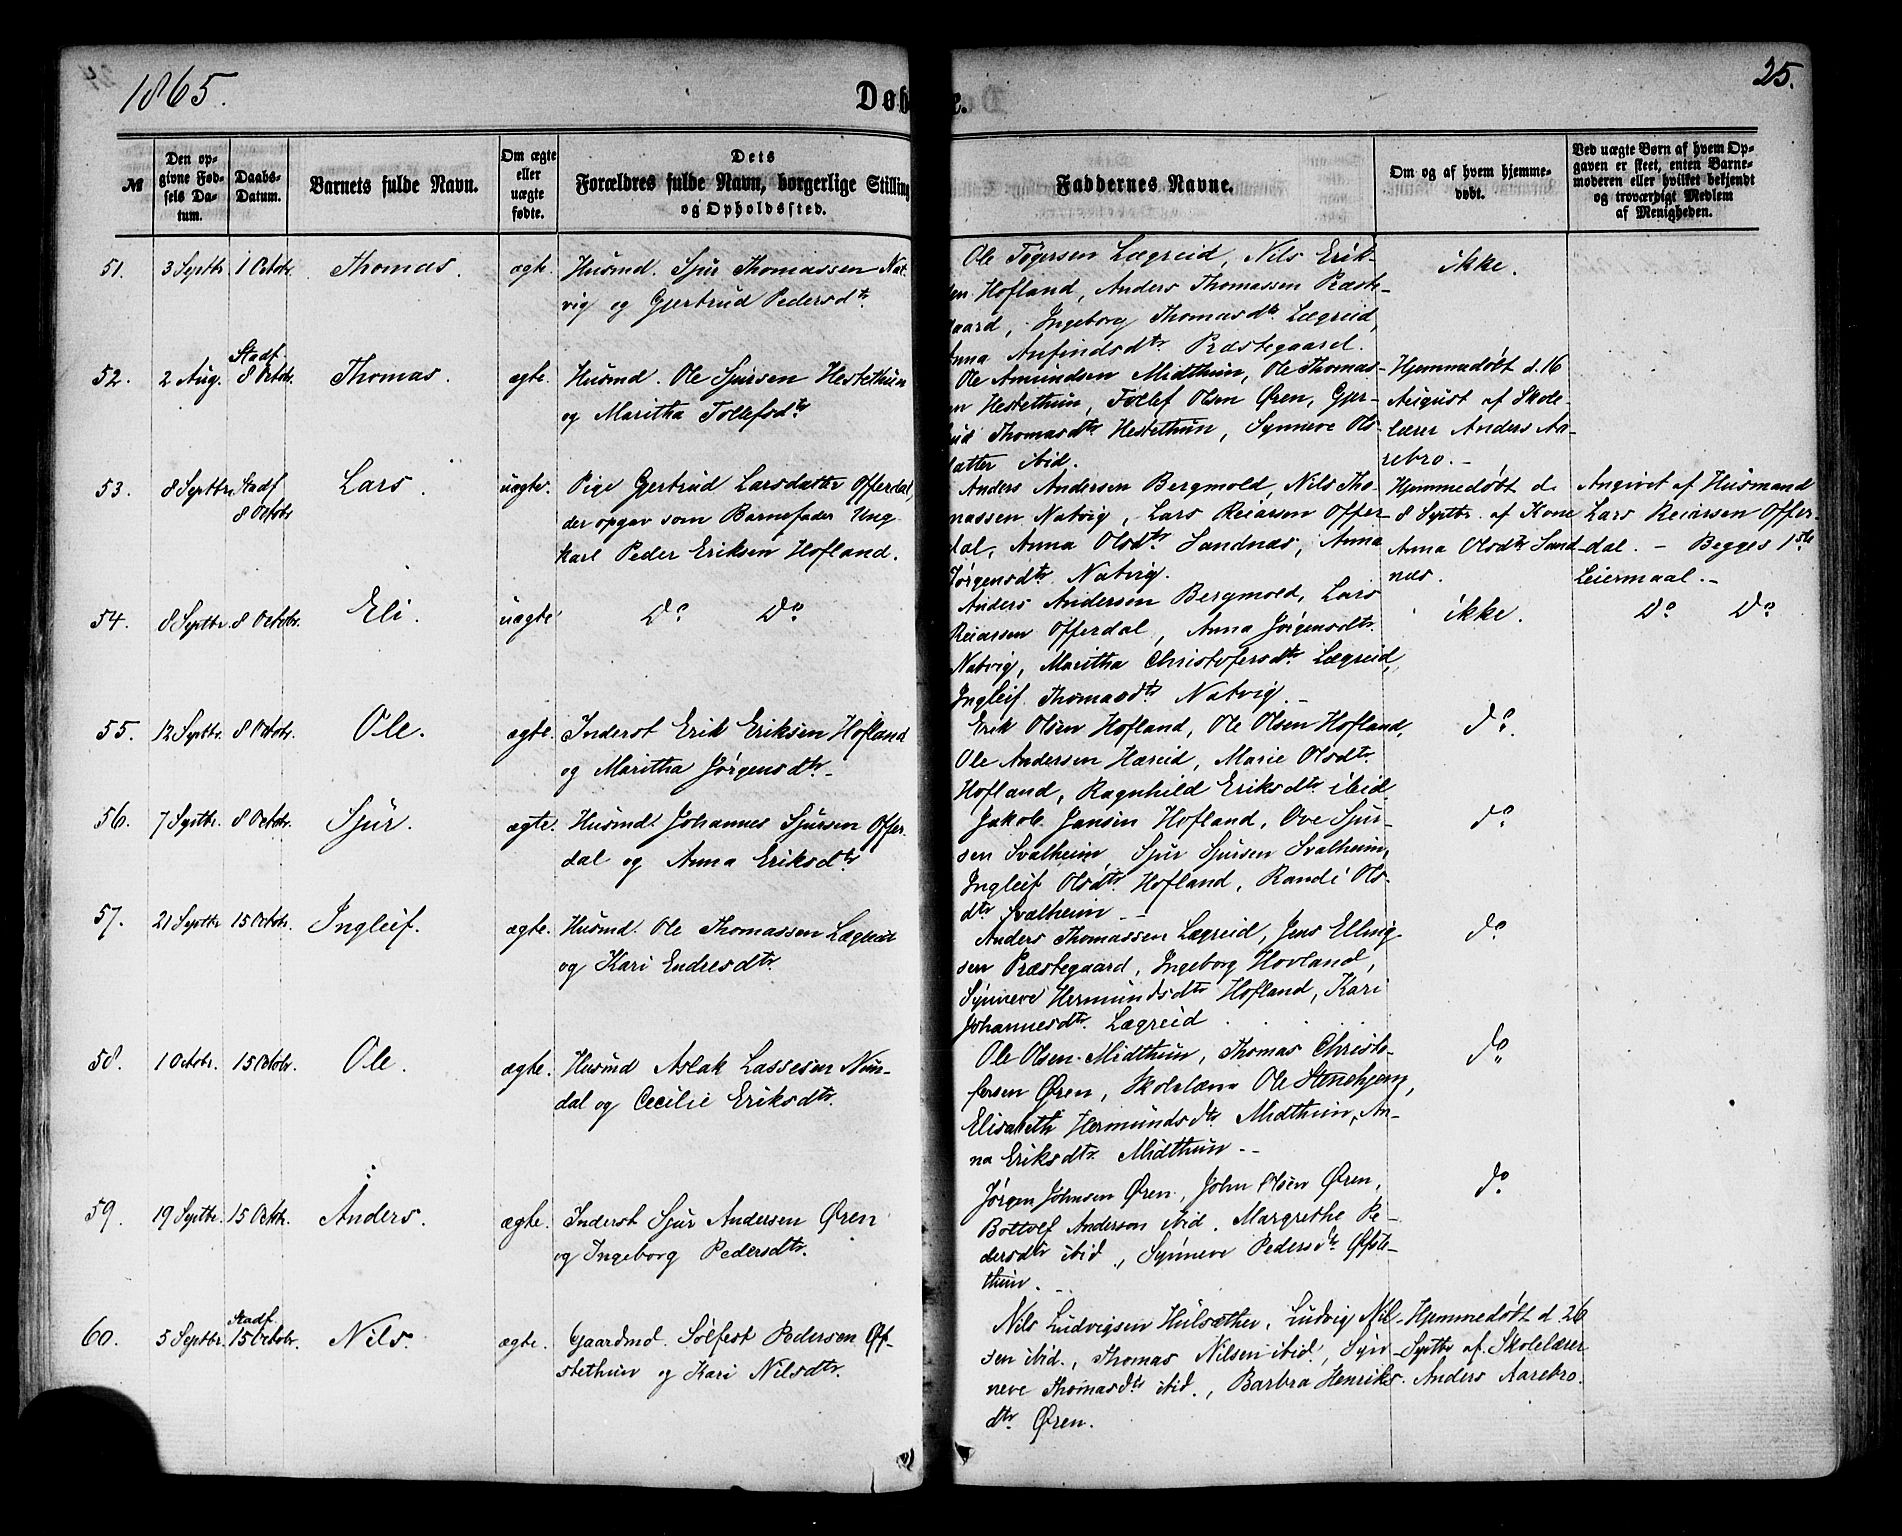 1865.
Døbte.
25.
№
Den opgivne Fødsels Datum.
Daabs-Datum.
Barnets fulde Navn.
Om ægte eller uægte fødte.
Dets Forældres fulde Navn, borgerlige Stilling og Opholdssted.
Faddernes Navne.
Om og af hvem hjemmedøbt.
Ved uægte Børn af hvem Opgaven er skeet, enten Barnemoderen eller hvilket bekjendt og troværdigt Medlem af Menigheden.
51. 3 Septbr. 1 Octobr. Thomas. ægte. Husmd. Sjur Thomassen Nat-
vig og Gjertrud Pedersdtr.
Ole Tøgersen Lægreid, Nils Erik-
sen Hofland, Anders Thomassen Præste-
gaard, Ingeborg Thomasdtr. Lægreid,
Anna Anfindsdtr. Præstegaard.
ikke.
52. 2 Aug. Stadf. 8 Octobr. Thomas. ægte. Husmd. Ole Sjursen Hestethun
og Maritha Tollefsdtr.
Ole Amundsen Midthun, Ole Thomas-
sen Hestethun, Tollef Olsen Øren, Gjer-
trud Thomasdtr. Hestethun, Synneve Ols-
datter ibid.
Hjemmedøbt d. 16
August af Skole-
lærer Anders Aa-
rebro. -
53. 8 Septbr. Stadf. 8 Octobr Lars. uægte. Pige Gjertrud Larsdatter Offerdal,
der opgav som Barnefader Ung-
karl Peder Eriksen Hofland.
Anders Andersen Bergmold, Nils Tho-
massen Natvig, Lars Reiarsen Offer-
dal, Anna Olsdtr. Sandnæs, Anna
Jørgensdtr. Natvig.
Hjemmedøbt d.
8 Septbr. af Kone
Anna Olsdtr. Sand-
næs.
Angivet af Husmand
Lars Reiarsen Offer-
dal. - Begges 1ste
Leiermaal. -
54. 8 Septbr. 8 Octobr. Eli. uægte Do Do
Anders Andersen Bergmold, Lars
Reiarsen Offerdal, Anna Jørgensdtr.
Natvig, Maritha Christofersdtr. Lægreid,
Ingleif Thomasdtr. Natvig. -
ikke. Do Do
55. 12 Septbr. 8 Octobr. Ole. ægte. Inderst Erik Eriksen Hofland
og Maritha Jørgensdtr. -
Erik Olsen Hofland, Ole Olsen Hofland,
Ole Andersen Hæreid, Marie Olsdtr.
Hofland, Ragnhild Eriksdtr. ibid.
do.
56. 7 Septbr. 8 Octobr. Sjur. ægte. Husmd. Johannes Sjursen Offer-
dal og Anna Eriksdtr.
Jakob Jansen Hofland, Ove Sjur-
sen Svalheim, Sjur Sjursen Svalheim,
Ingleif Olsdtr. Hofland, Randi Ols-
dtr. Svalheim. -
do
57. 21 Septbr 15 Octobr. Ingleif. ægte. Husmd. Ole Thomassen Lægreid
og Kari Endresdtr.
Anders Thomassen Lægreid, Jens Elling-
sen Præstegaard, Ingeborg Hovland,
Synneve Hermundsdtr. Hofland, Kari
Johannesdtr. Lægreid.
do
58. 1 Octobr. 15 Octobr. Ole. ægte. Husmd Aslak Lassesen Nun-
dal og Cecilie Eriksdtr.
Ole Olsen Midthun, Thomas Christo-
fersen Øren, Skolelærer Ole Stenehjem,
Elisabeth Hermundsdtr. Midthun, An-
na Eriksdtr. Midthun. -
do
59. 19 Septbr. 15 Octbr. Anders. ægte. Inderst Sjur Andersen Øren
og Ingeborg Pedersdtr.
Jørgen Johnsen Øren, John Olsen Øren,
Bottolf Anderson ibid. Margrethe Pe-
dersdtr ibid., Synneve Pedersdtr. Øfste-
thun. -
do
60. 5 Septbr. Stadf. 15 Octobr. Nils. ægte. Gaardmd. Solfest Pedersen Øf-
stethun og Kari Nilsdtr.
Nils Ludvigsen Hulsæther, Ludvig Nil-
sen ibid., Thomas Nilsen ibid., Syn-
neve Thomasdtr ibid., Barbra Henriks-
dtr. Øren.
Hjemmedøbt d. 26
Septbr af Skolelærer
Anders Aarebro.